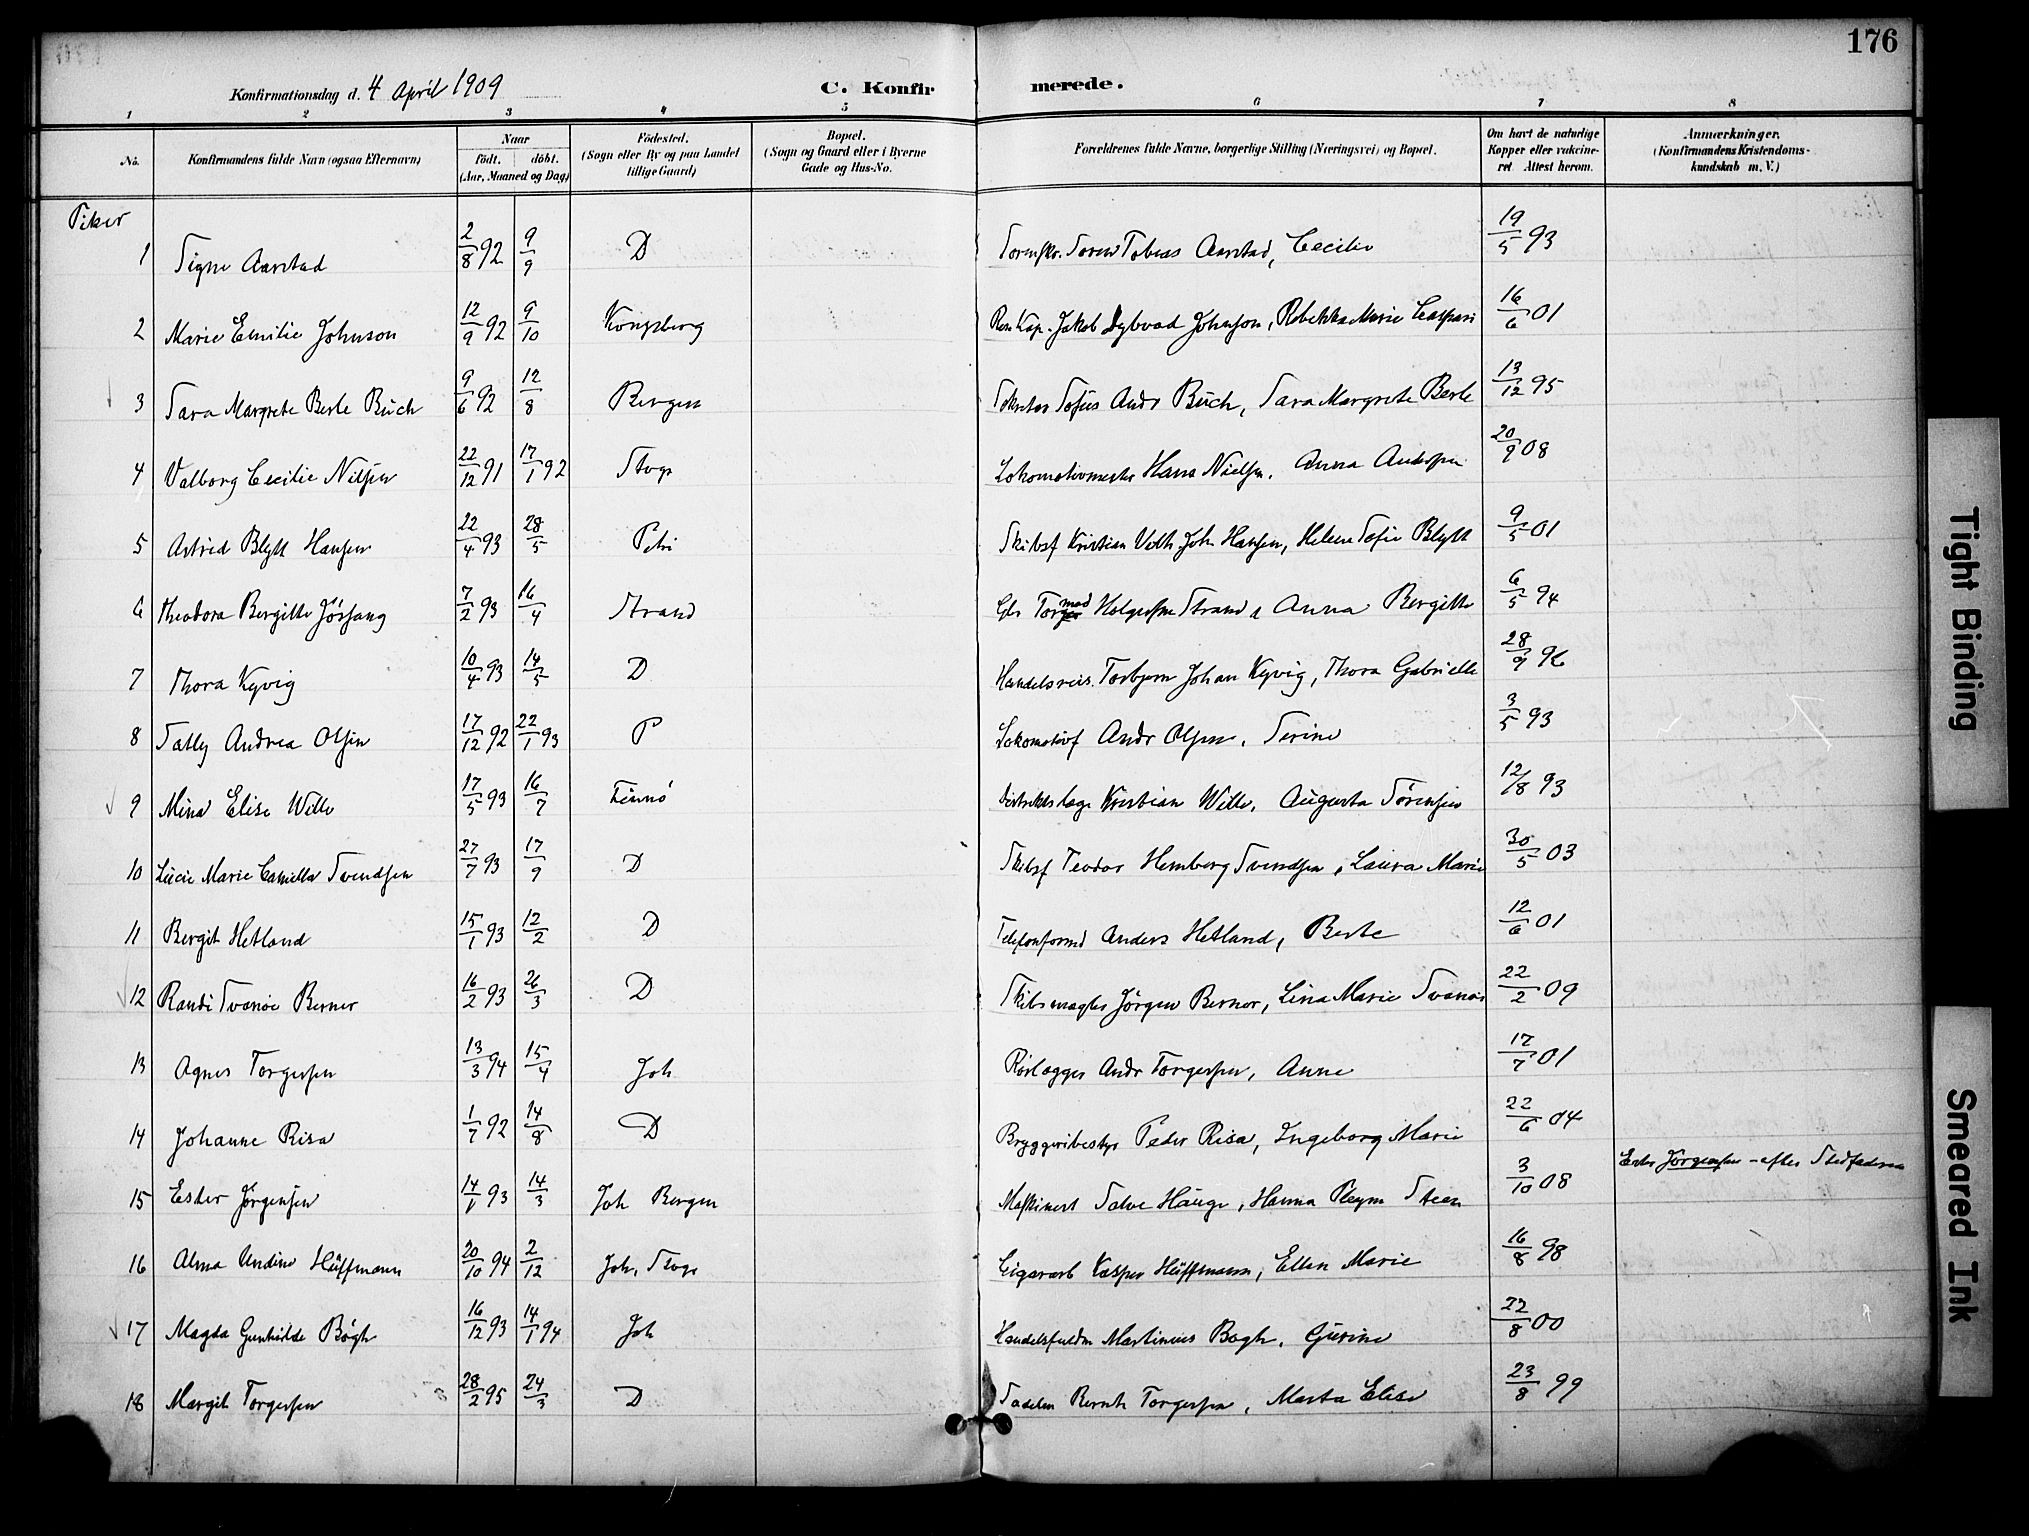 176
Konfirmationsdag d. 4 April 1909
C. Konfirmerede.
1 2 3 4 5 6 7 8
No. Konfirmandens fulde Navn (ogsaa Efternavn) Naar födt. döbt. (Aar, Maaned og Dag) Födested. (Sogn eller By og paa Landet tillige Gaard) Bopæl. (Sogn og Gaard eller i Byerne Gade og Hus-No. Forældrenes fulde Navne, borgerlige Stilling (Næringsvei) og Bopæl. Om havt de naturlige Kopper eller vakcineret Attest herom. Anmærkninger. (Konfirmandens Kristendomskundskab m. V.)
Piker
1 Signe Aarstad 2/8 92 9/9 D Soren Tobias Aarstad, Cecilie 19/5 93
2 Marie Emilie Johnson 12/9 92 9/10 Kongsberg Res Kap. Jakob Dybvad Johnson, Rebekka Marie Caspari 16/6 01
3 Sara Margrete Berle Buch 9/6 92 12/8 Bergen Sofus Andr Buch, Sara Margrete Berle 13/12 95
4 Valborg Cecilie Nilsen 22/12 91 17/1 92 Stvgr Lokomotivmester Hans Nielsen, Anna 20/9 08
5 Astrid Blytt Hansen 22/4 93 28/5 Petri Skibsf Kristian Vilh. Joh Hansen, Helene Sofie Blytt 9/5 01
6 Theodora Bergitte Jössang 7/2 93 16/4 Strand Gbr Tormod Holgersen Strand & Anna Bergitte 6/5 94
7 Thora Kyvig 10/4 93 14/5 D Handelsreis. Torbjorn Johan Kyvig, Thora Gabrielle 28/9 96
8 Sally Andrea Olsen 17/12 92 22/1 93 P Lokomotivf Andr Olsen, Serine 3/5 93
9 Mina Elise Wille 17/5 93 16/7 Finnö Distriktslæge Kristian Wille, Augusta Sörensen 12/8 93
10 Lucie Marie Camilla Svendsen 27/7 93 17/9 D Skibsf Teodor Hemberg Svendsen, Laura Marie 30/5 03
11 Bergit Hetland 15/1 93 12/2 D Telefonformd Anders Hetland, Berte 12/6 01
12 Randi Svanöe Berner 16/2 93 26/3 D Skibsmægler Jörgen Berner, Lina Marie Svanöe 22/2 09
13 Agnes Torgersen 13/3 94 15/4 Joh Rörlægger Andr Torgersen, Anne 17/7 01
14 Johanne Risa 1/7 92 14/8 D Bryggeribestyr Peder Risa, Ingeborg Marie 22/6 04
15 Ester Jörgensen 14/1 93 14/3 Joh Bergen Maskinest Salve Hauge, Hanna Pleym Steen 3/10 08 Ester Jörgensen - efter Stedfaderen
16 Alma Undine Hüffmann 20/10 94 2/12 Joh, Stvgr Cigararb Kasper Hüffmann, Ellen Marie 16/8 98
17 Magda Gunhilde Bögh 16/12 93 14/1 94 Joh Handelsfuldm Martinius Bøgh, Gurine 22/8 00
18 Margit Torgersen 28/2 95 24/3 D Sadelm Bernh Torgersen, Marta Elise 23/8 99
Tight Binding
Smeared Ink